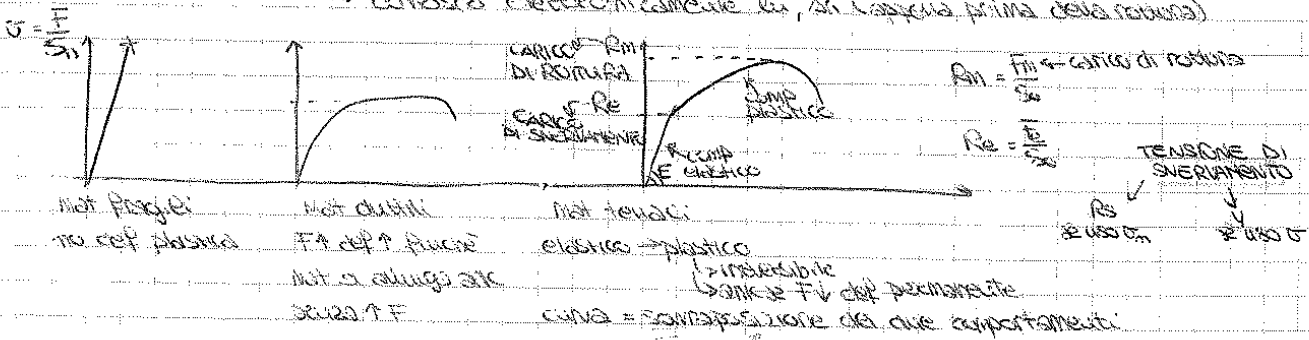 prima della rottura)
σ = F/S₀
CARICO DI ROTTURA
Rm
CARICO DI SNERVAMENTO
Re
comp plastico
comp elastico
E
Rm = Fm/S₀ ← carico di rottura
Re = /S₀
TENSIONE DI SNERVAMENTO
Rs
se uso σn
se uso σ
Mat fragili
no def plastica
Mat duttili
F↑ def ↑ finché
mat si allunga anc
senza ↑ F
Mat tenaci
elastico → plastico
↳ irreversibile
↳ anc se F↓ def permanente
curva = sovrapposizione dei due comportamenti